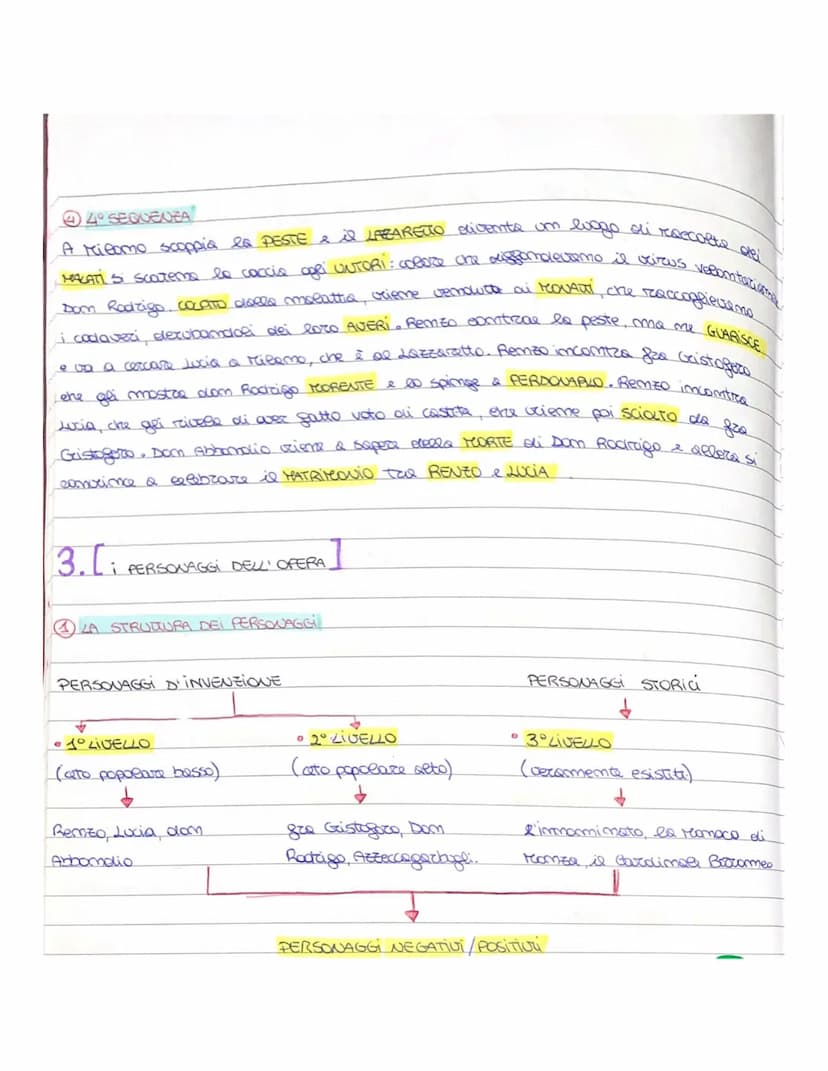 ④ 4° SEQUENZA
A Milano scoppia la PESTE e il LAZZARETTO diventa un luogo di raccolta dei
MALATI si scatena la caccia agli UNTORI: coloro che diffondevano il virus volontariamente
Don Rodrigo, COLPITO dalla malattia, viene venduto ai MONATTI, che raccoglievano
i cadaveri, derubandoli dei loro AVERI. Renzo contrae la peste, ma ne GUARISCE
e va a cercare Lucia a Milano, che è al Lazzaretto. Renzo incontra fra Cristoforo
che gli mostra don Rodrigo MORENTE e lo spinge a PERDONARLO. Renzo incontra
Lucia, che gli rivela di aver fatto voto di castità, che viene poi SCIOLTO da fra
Cristoforo. Don Abbondio viene a sapere della MORTE di Don Rodrigo e allora si
convince a celebrare il MATRIMONIO tra RENZO e LUCIA
3. [i PERSONAGGI DELL'OPERA]
① LA STRUTTURA DEI PERSONAGGI
PERSONAGGI D'INVENZIONE PERSONAGGI STORICI
• 1° LIVELLO • 2° LIVELLO • 3° LIVELLO
(ceto popolare basso) (ceto popolare alto) (veramente esistiti)
Renzo, Lucia, don fra Cristoforo, Don l'innominato, la Monaca di
Abbondio Rodrigo, Azzeccagarbugli. Monza, il Cardinale Borromeo
PERSONAGGI NEGATIVI/POSITIVI